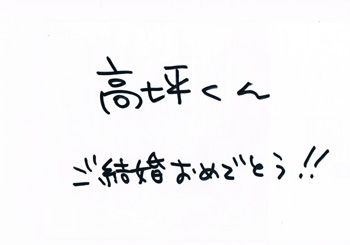 高坪くん
ご結婚おめでとう!!